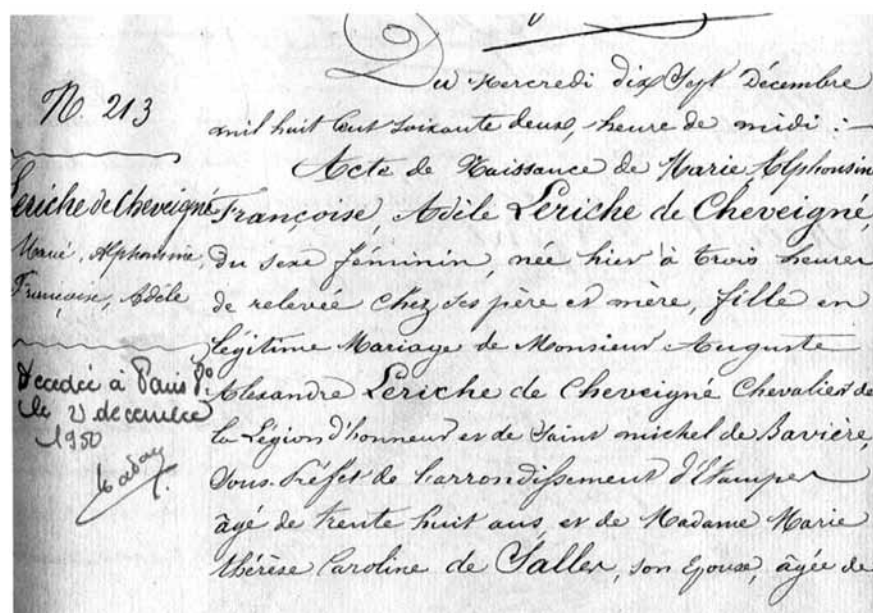 N. 213
Leriche de Cheveigné
Marie, Alphonsine,
Françoise, Adèle
Décédée à Paris
le 2 décembre
1950
Du Mercredi dix Sept Décembre
mil huit Cent soixante deux, heure de midi : —
Acte de Naissance de Marie, Alphonsin
Françoise, Adèle Leriche de Cheveigné,
du sexe féminin, née hier à trois heures
de relevée chez ses père et mère, fille en
légitime Mariage de Monsieur Auguste
Alexandre Leriche de Cheveigné Chevalier de
la Légion d'honneur et de Saint michel de Bavière,
Sous-Préfet de l'arrondissement d'Etampes
âgé de trente huit ans, et de Madame Marie
thérèse Caroline de Salles, son Epouse, âgée de